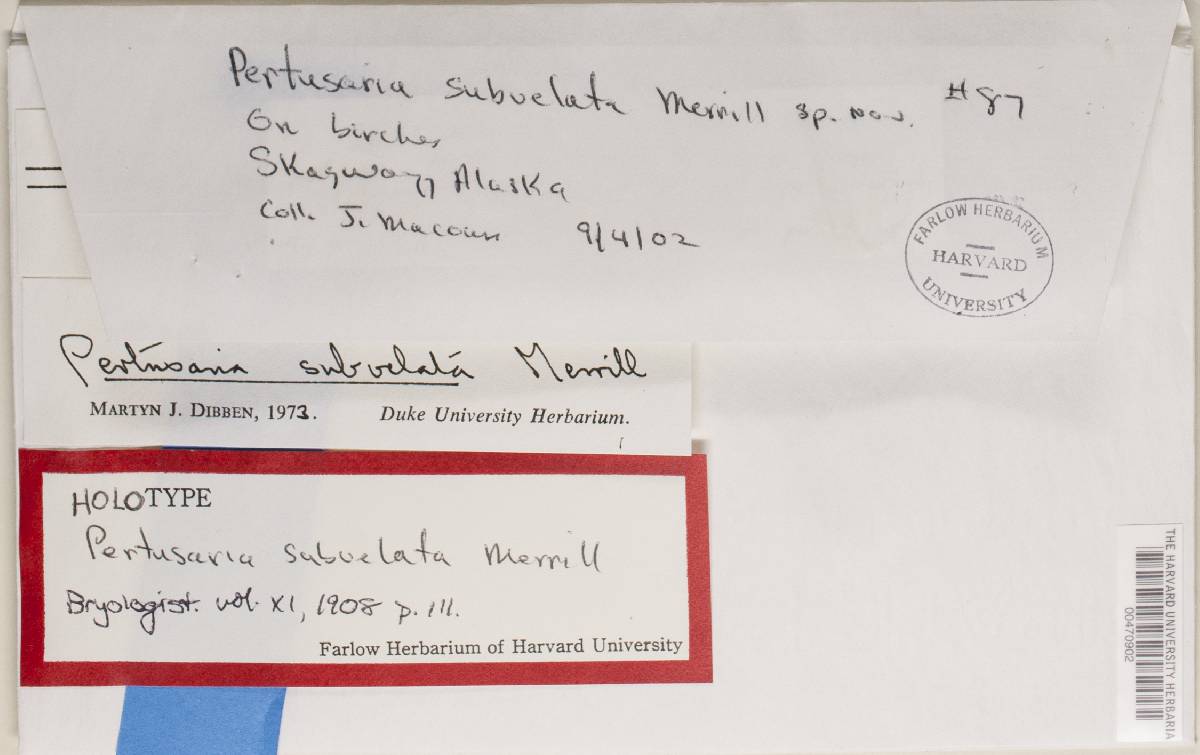 Pertusaria subvelata Merrill sp. nov. #87
On birches
Skagway, Alaska
Coll. J. Macoun 9/4/02
FARLOW HERBARIUM
HARVARD
UNIVERSITY
Pertusaria subvelata Merrill
MARTYN J. DIBBEN, 1973. Duke University Herbarium.
HOLOTYPE
Pertusaria subvelata Merrill
Bryologist. vol. XI, 1908 p. 111.
Farlow Herbarium of Harvard University
THE HARVARD UNIVERSITY HERBARIA
00470902